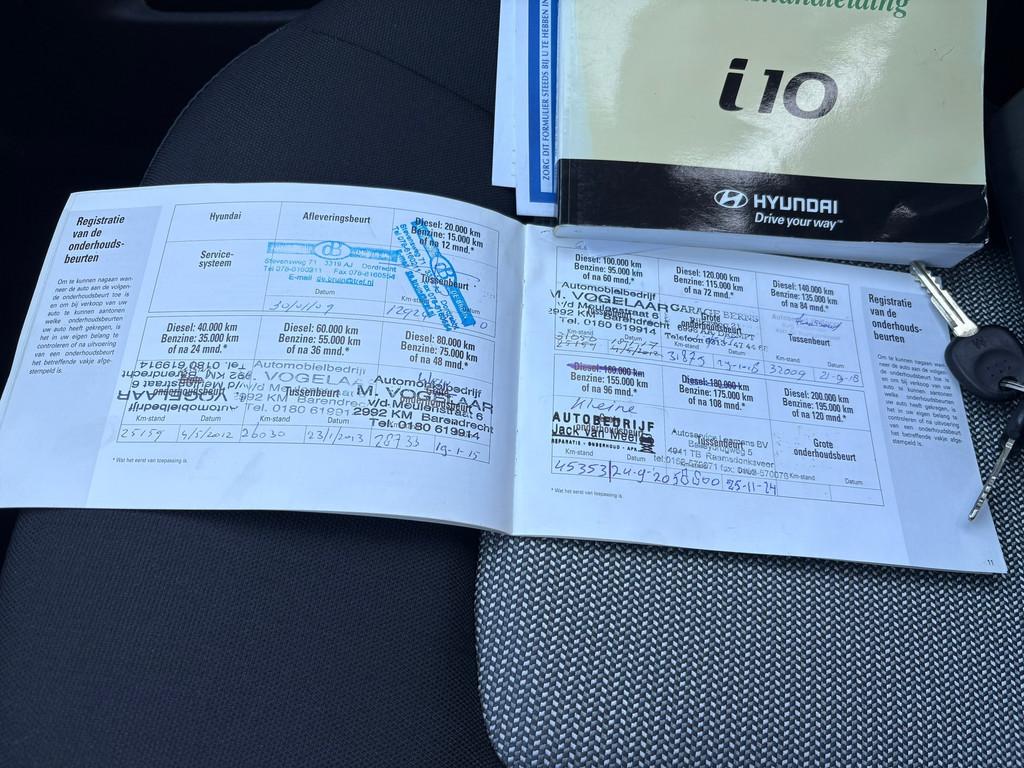 handleiding
i10
HYUNDAI
Drive your way™
ZORG DIT FORMULIER STEEDS BIJ U TE HEBBEN IN
Registratie
van de
onderhouds-
beurten
Om te kunnen nagaan wan-
neer de auto aan de volgen-
de onderhoudsbeurt toe is
en om bij verkoop van uw
auto te kunnen aantonen
welke onderhoudsbeurten
uw auto heeft gekregen, is
het in uw eigen belang te
controleren of na uitvoering
van een onderhoudsbeurt
het betreffende vakje afge-
stempeld is.
Hyundai
Service-
systeem
Afleveringsbeurt
Stevensweg 71 3319 AJ Dordrecht
E-mail
Datum
30/01/09
Diesel: 20.000 km
Benzine: 15.000 km
of na 12 mnd.*
Tussenbeurt
Diesel: 40.000 km
Benzine: 35.000 km
of na 24 mnd.*
Automobielbedrijf
M. VOGELAAR
v/d Meulenstraat 6
2992 KM Barendrecht
Tel. 0180 619914
onderhoudsbeurt
Km-stand Datum
25159 4/5/2012
Diesel: 60.000 km
Benzine: 55.000 km
of na 36 mnd.*
Automobielbedrijf
M. VOGELAAR
Tussenbeurt
Tel. 0180 61991
Km-stand Datum
26030 23/1/2013
Diesel: 80.000 km
Benzine: 75.000 km
of na 48 mnd.*
Automobielbedrijf
M. VOGELAAR
v/d Meulenstraat 6
2992 KM Barendrecht
Tel. 0180 619914
28733 19-1-15
* Wat het eerst van toepassing is.
Diesel: 100.000 km
Benzine: 95.000 km
of na 60 mnd.*
Automobielbedrijf
M. VOGELAAR
v/d Meulenstraat 6
2992 KM Barendrecht
Tel. 0180 619914
Diesel: 120.000 km
Benzine: 115.000 km
of na 72 mnd.*
GARAGE BERNS
Km-stand
31875
Diesel: 140.000 km
Benzine: 135.000 km
of na 84 mnd.*
Tussenbeurt
Km-stand Datum
32009 21-9-18
Diesel: 160.000 km
Benzine: 155.000 km
of na 96 mnd.*
Kleine
AUTOBEDRIJF
Jack van Meel
Km-stand Datum
45353
Diesel: 180.000 km
Benzine: 175.000 km
of na 108 mnd.*
Tussenbeurt
4941 TB Raamsdonksveer
25-11-24
Diesel: 200.000 km
Benzine: 195.000 km
of na 120 mnd.*
Grote
onderhoudsbeurt
Km-stand Datum
* Wat het eerst van toepassing is.
Registratie
van de
onderhouds-
beurten
Om te kunnen nagaan wan-
neer de auto aan de volgen-
de onderhoudsbeurt toe is
en om bij verkoop van uw
auto te kunnen aantonen
welke onderhoudsbeurten
uw auto heeft gekregen, is
het in uw eigen belang te
controleren of na uitvoering
van een onderhoudsbeurt
het betreffende vakje afge-
stempeld is.
11